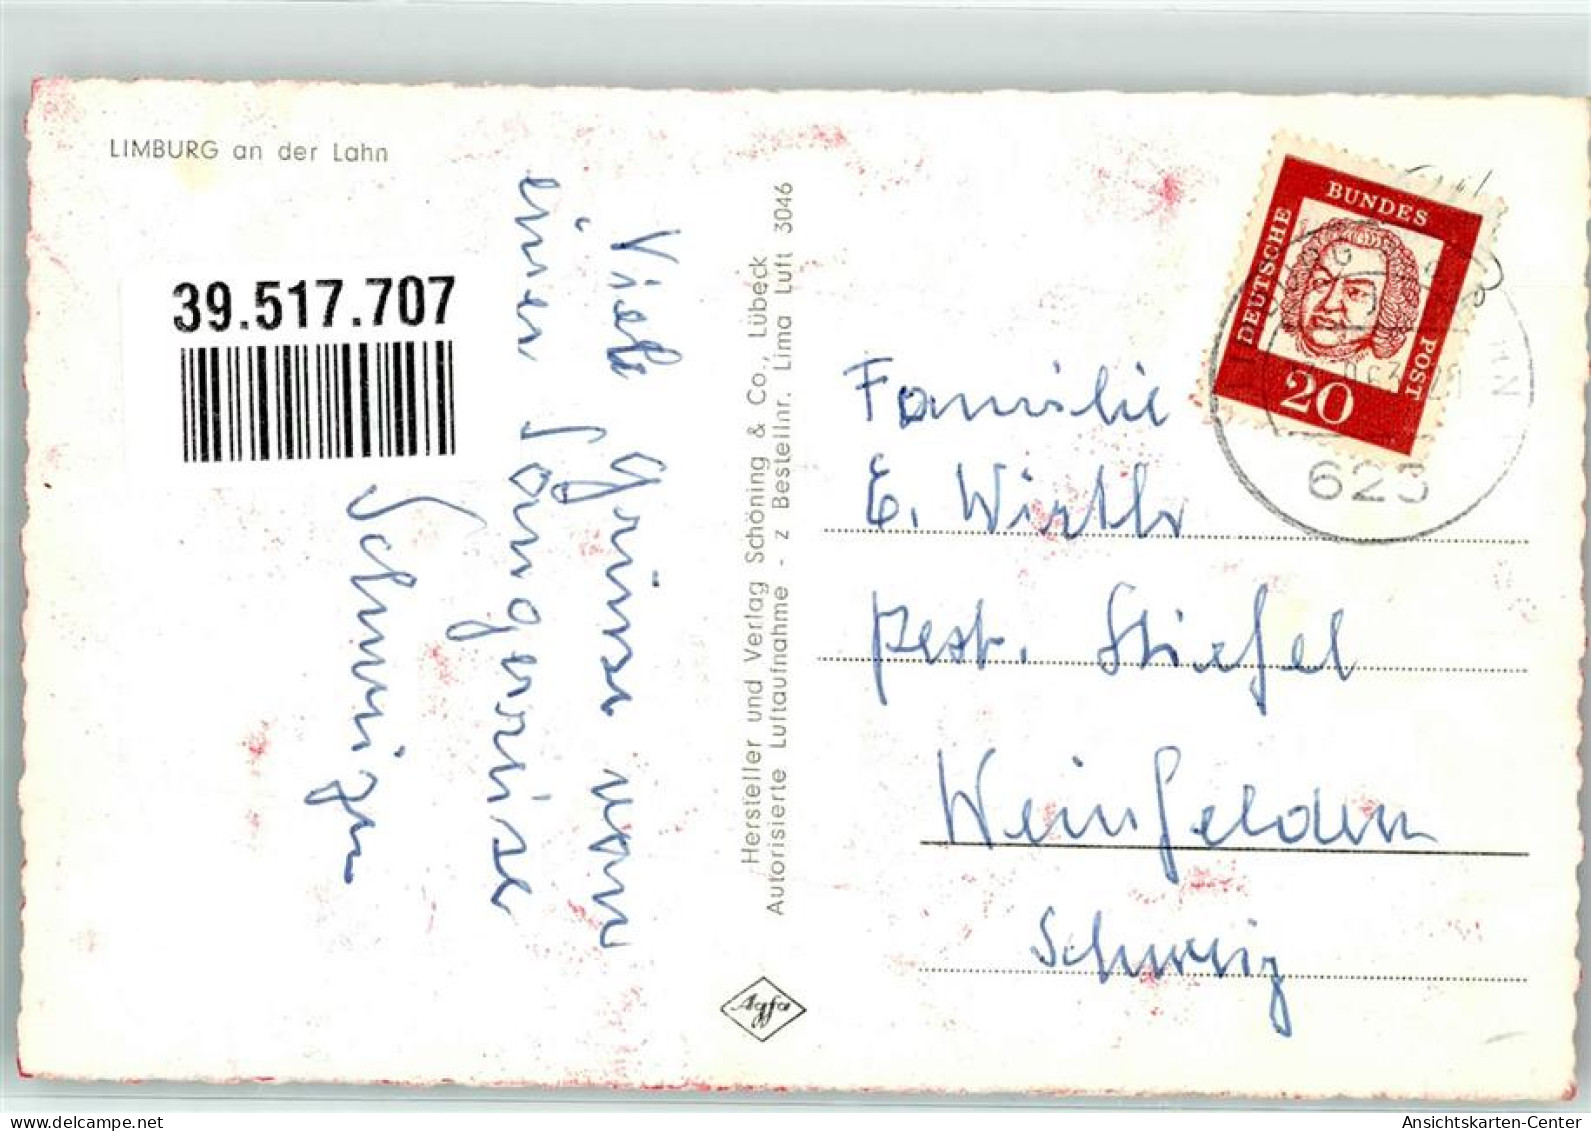 LIMBURG an der Lahn
39.517.707
Viele Grüsse von
einer Sängerreise
Hersteller und Verlag Schöning & Co., Lübeck
Autorisierte Luftaufnahme - z Bestellnr. Lima Luft 3046
Agfa
DEUTSCHE BUNDES POST
20
623
Familie
E. Wirth
Rest. Stiefel
Weinfelden
Schweiz
Ansichtskarten-Center